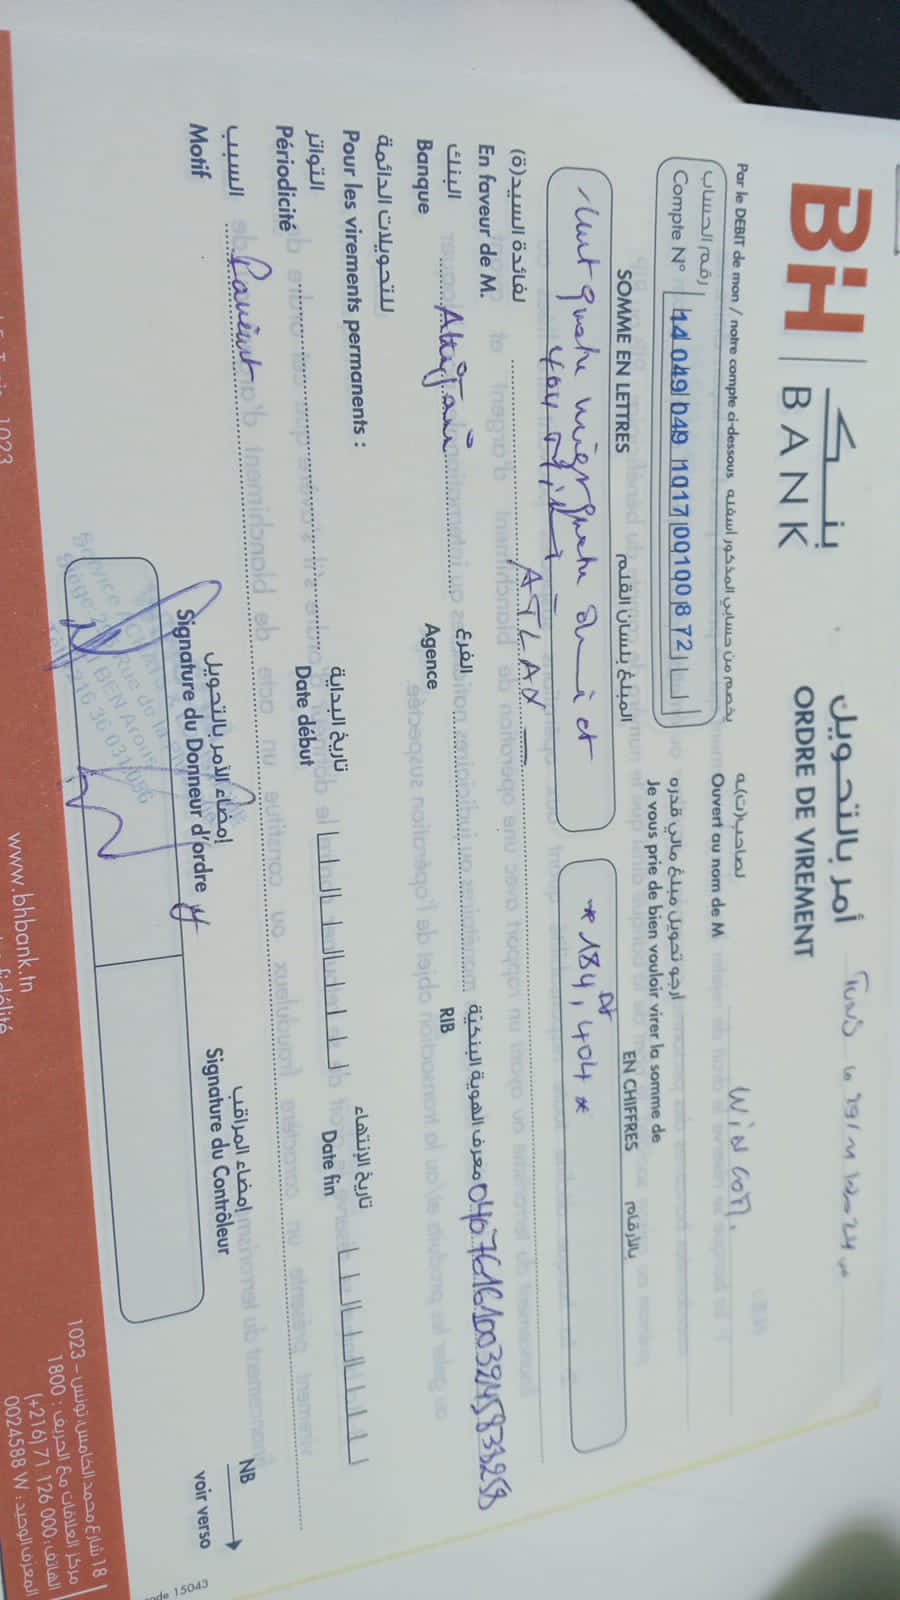 BH بنك
BANK
أمر بالتحويل
ORDRE DE VIREMENT
Par le DEBIT de mon / notre compte ci-dessous بخصم من حسابي المذكور أسفله
رقم الحساب
Compte N° 14 049 049 1017 00100 8 72
لصاحب(ت)ه
Ouvert au nom de M WINCOM.
أرجو تحويل مبلغ مالي قدره
Je vous prie de bien vouloir virer la somme de
SOMME EN LETTRES المبلغ بلسان القلم
EN CHIFFRES بالأرقام
quatre et
404
* 184, Dt 404 *
لفائدة السيد(ة)
En faveur de M. ATLAX
البنك
Banque Attijari
الفرع
Agence
معرف الهوية البنكية
RIB 04076161003245833258
للتحويلات الدائمة
Pour les virements permanents :
التواتر
Périodicité
تاريخ البداية
Date début
تاريخ الإنتهاء
Date fin
السبب
Motif
إمضاء الأمر بالتحويل
Signature du Donneur d'ordre
إمضاء المراقب
Signature du Contrôleur
NB
voir verso
BEN Arous
www.bhbank.tn
18 شارع محمد الخامس تونس – 1023
مركز العلاقات مع الحريف : 1800
الهاتف : 000 126 71 (216+)
المعرف الوحيد : 0024588 W
code 15043